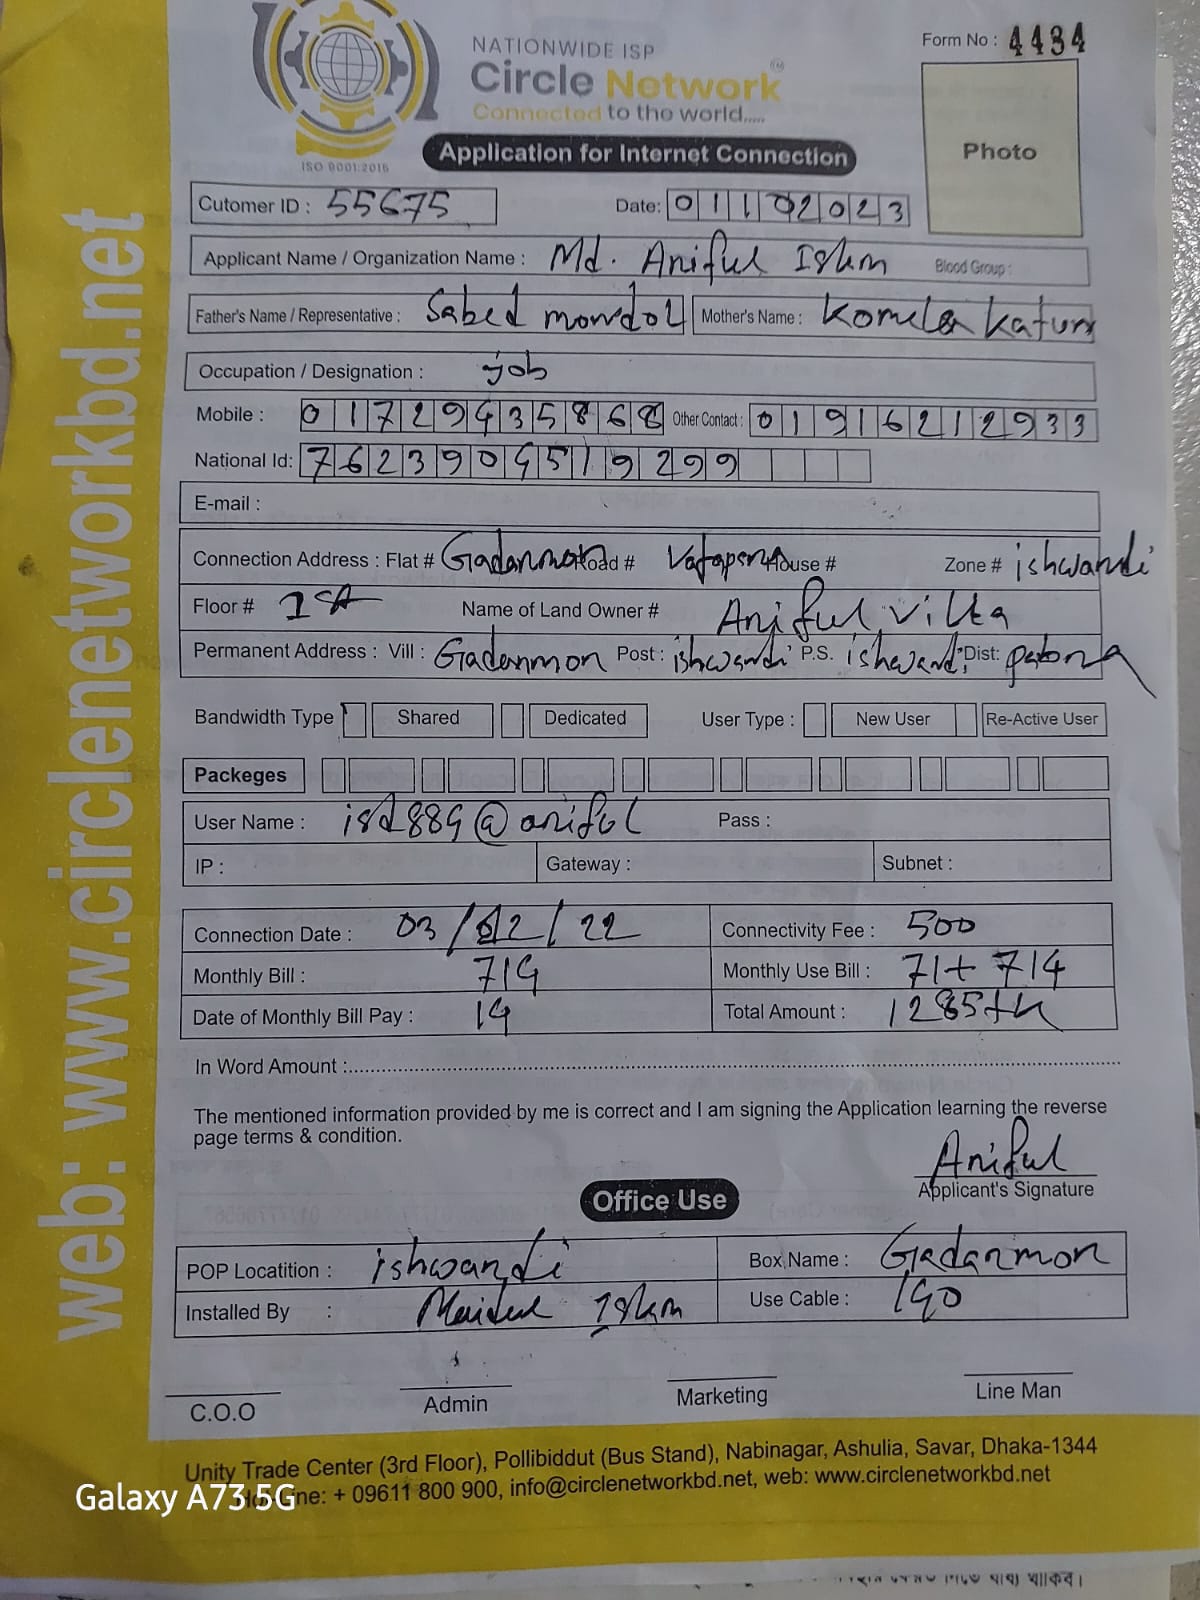 NATIONWIDE ISP
Circle Network
Connected to the world.....
ISO 9001:2015
Form No : 4434
Photo
Application for Internet Connection
Cutomer ID : 55675 Date: 01102023
Applicant Name / Organization Name : Md. Aniful Islam Blood Group :
Father's Name / Representative : Sabed mondol Mother's Name : Komela katun
Occupation / Designation : job
Mobile : 01729435868 Other Contact : 01916212933
National Id: 7623904519299
E-mail :
Connection Address : Flat # Gadanmon Road # Vatapara House # Zone # ishwardi
Floor # 1st Name of Land Owner # Aniful villa
Permanent Address : Vill : Gadanmon Post : ishwardi P.S. ishwardi Dist: pabna
Bandwidth Type Shared Dedicated User Type : New User Re-Active User
Packeges
User Name : isd884@aniful Pass :
IP : Gateway : Subnet :
Connection Date : 03/02/22 Connectivity Fee : 500
Monthly Bill : 714 Monthly Use Bill : 71+714
Date of Monthly Bill Pay : 14 Total Amount : 1285tk
In Word Amount :
The mentioned information provided by me is correct and I am signing the Application learning the reverse
page terms & condition.
Aniful
Applicant's Signature
Office Use
POP Locatition : ishwardi Box Name : Gadanmon
Installed By : Maidul Islam Use Cable : 140
C.O.O Admin Marketing Line Man
Unity Trade Center (3rd Floor), Pollibiddut (Bus Stand), Nabinagar, Ashulia, Savar, Dhaka-1344
Line: + 09611 800 900, info@circlenetworkbd.net, web: www.circlenetworkbd.net
Galaxy A73 5G
web: www.circlenetworkbd.net